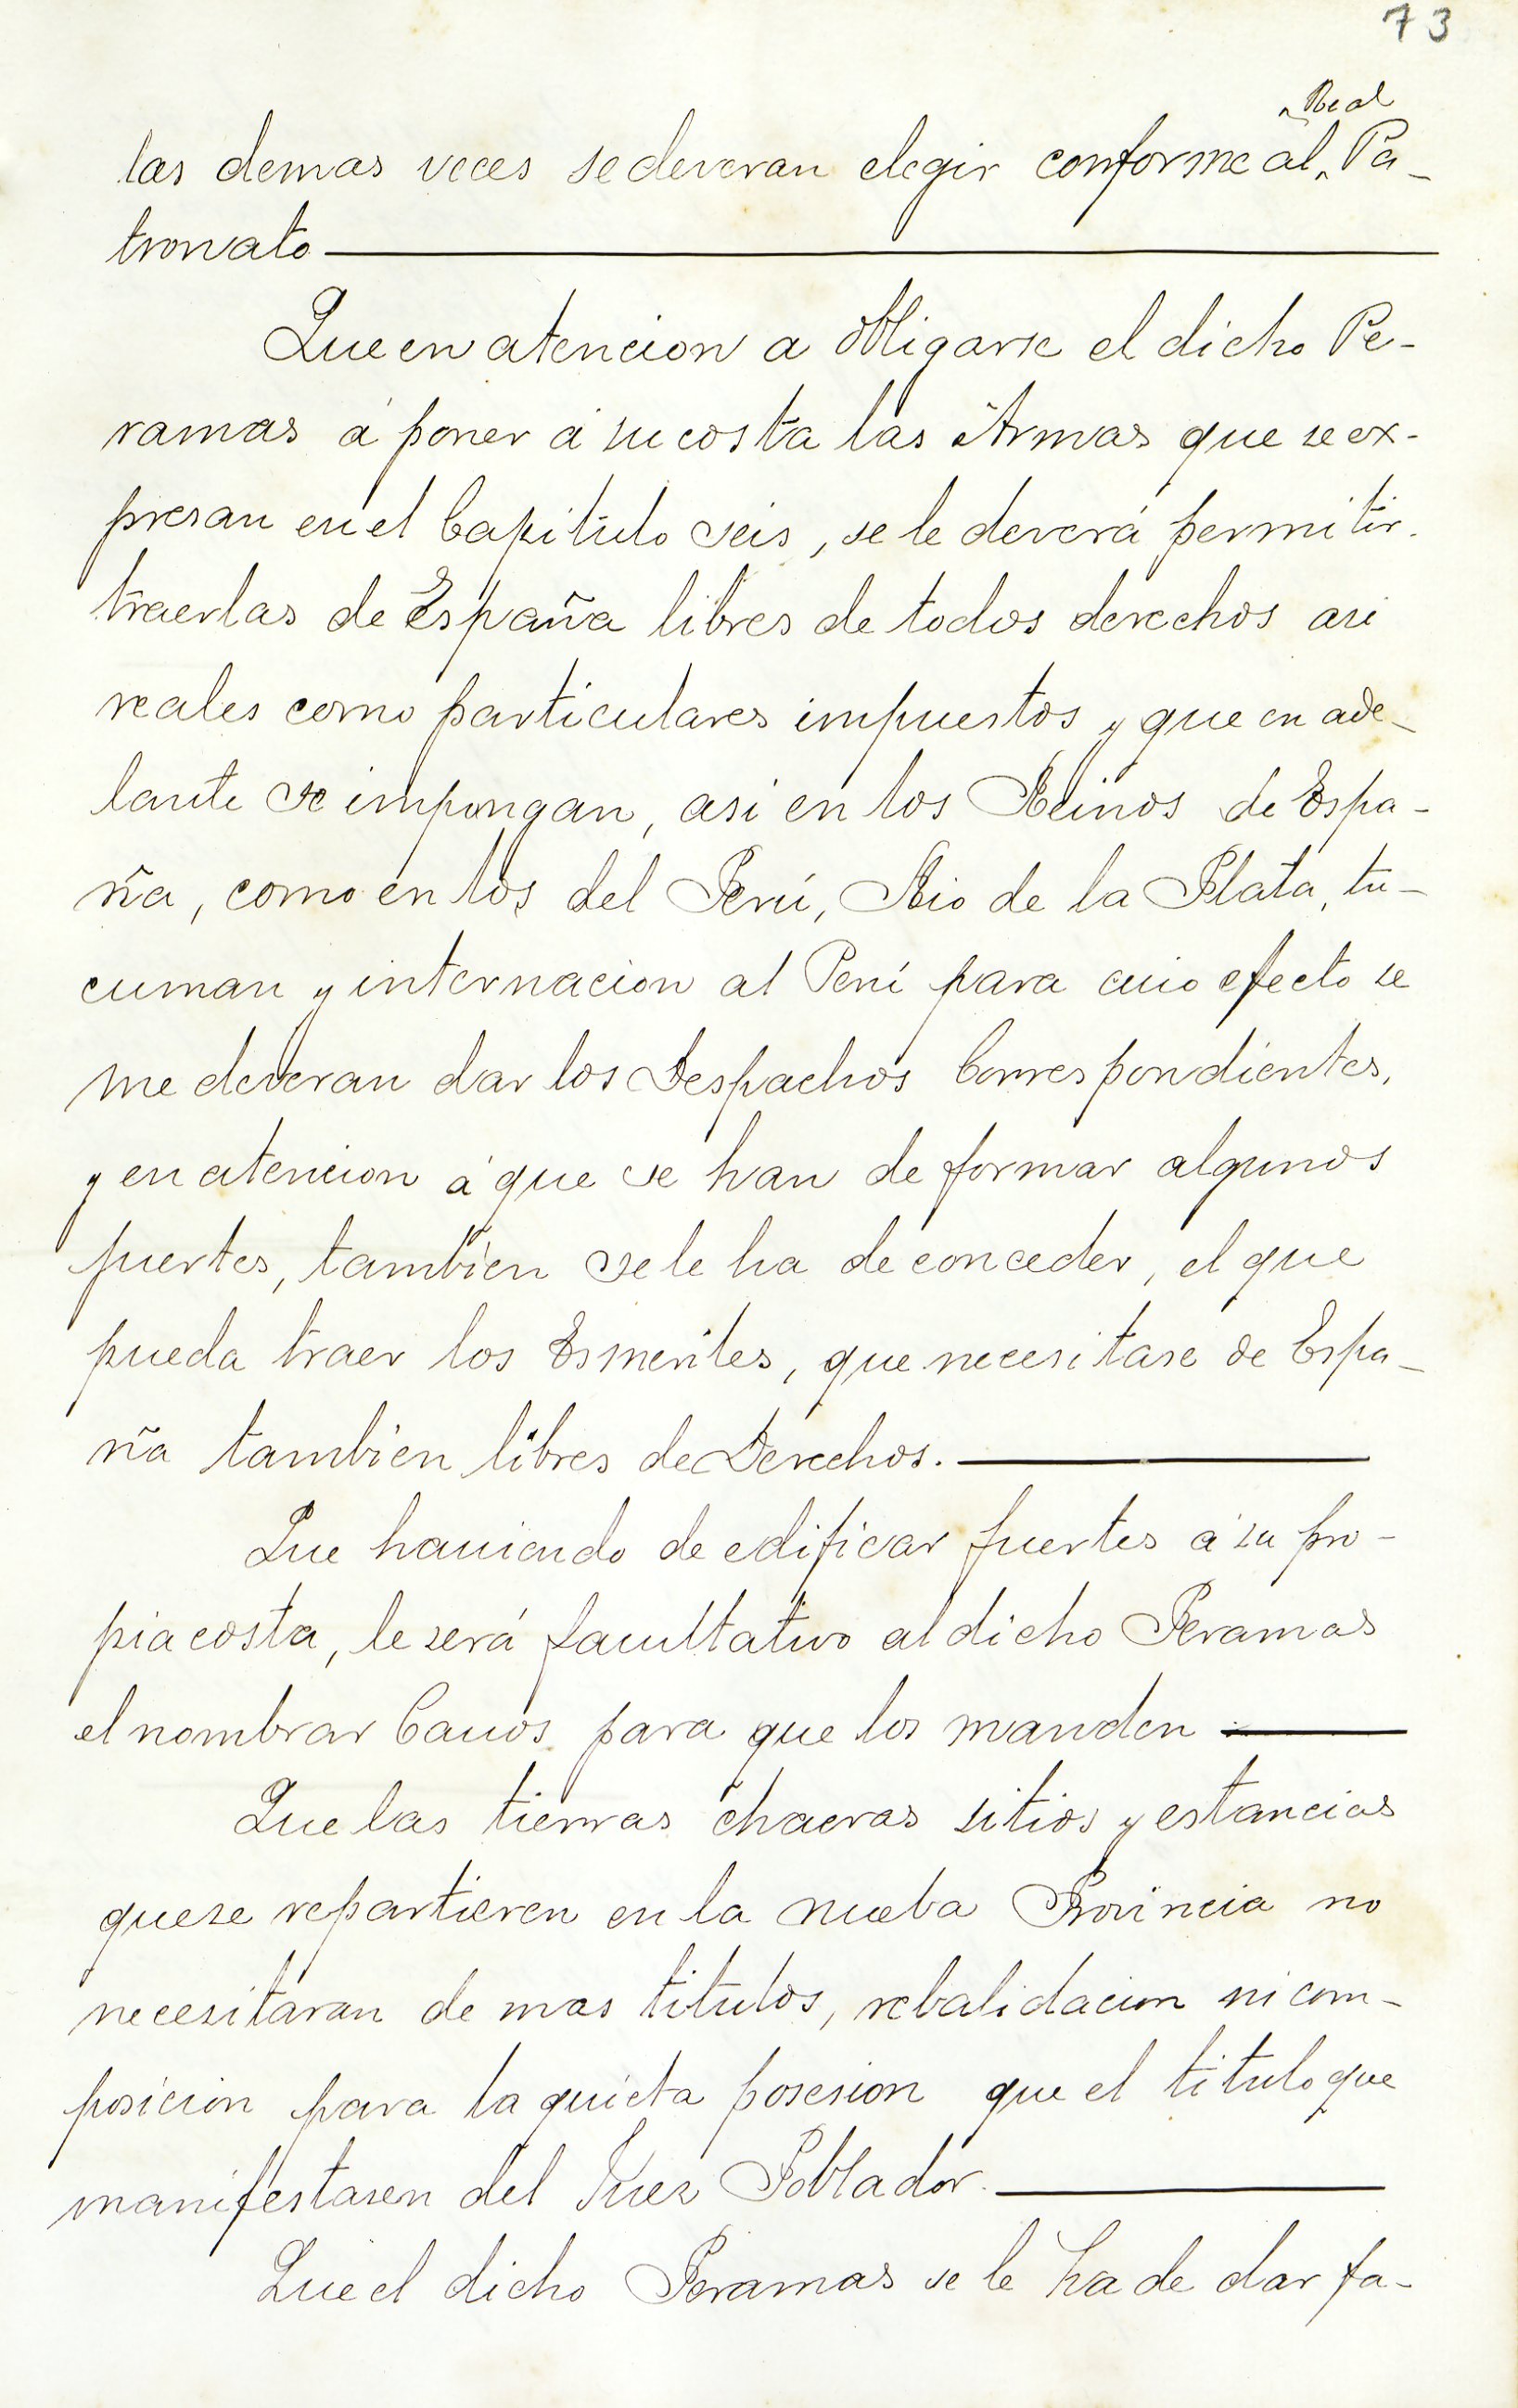 73
Real
las demas veces se deveran elegir conforme al ^ Pa-
tronato
Que en atencion a obligarse el dicho Pe-
ramas á poner á su costa las Armas que se ex-
presan en el Capitulo seis, se le deverá permitir
traerlas de España libres de todos derechos asi
reales como particulares impuestos y que en ade-
lante se impongan, asi en los Reinos de Espa-
ña, como en los del Perú, Rio de la Plata, tu-
cuman y internacion al Perú para cuio efecto se
me deveran dar los Despachos Correspondientes,
y en atencion á que se han de formar algunos
fuertes, tambien se le ha de conceder, el que
pueda traer los Esmeriles, que necesitase de Espa-
ña tambien libres de Derechos.
Que haviendo de edificar fuertes á su pro-
pia costa, le será facultativo al dicho Peramas
el nombrar Cavos para que los manden
Que las tierras chacras sitios y estancias
que se repartieren en la nueba Provincia no
necesitaran de mas titulos, rebalidacion ni com-
posicion para la quieta posesion que el titulo que
manifestasen del Juez Poblador.
Que el dicho Peramas se le ha de dar fa-